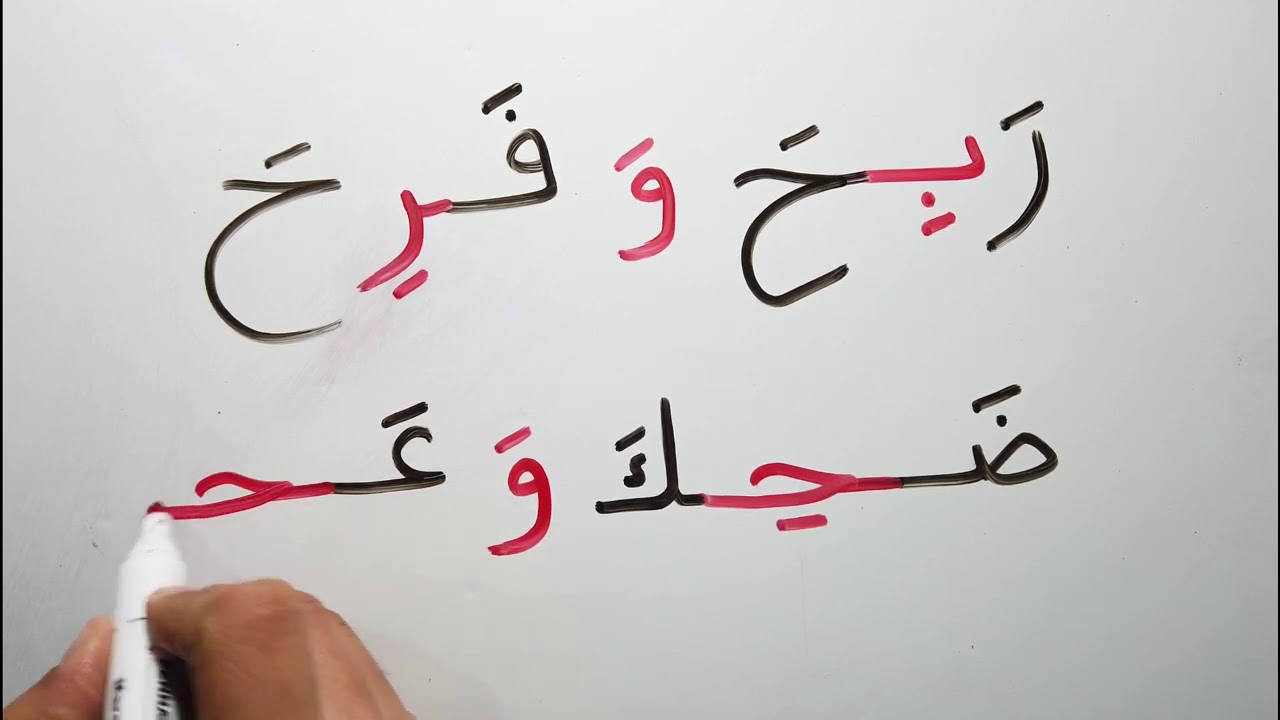 رَبِحَ وَ فَرِحَ
ضَحِكَ وَ عَحـ